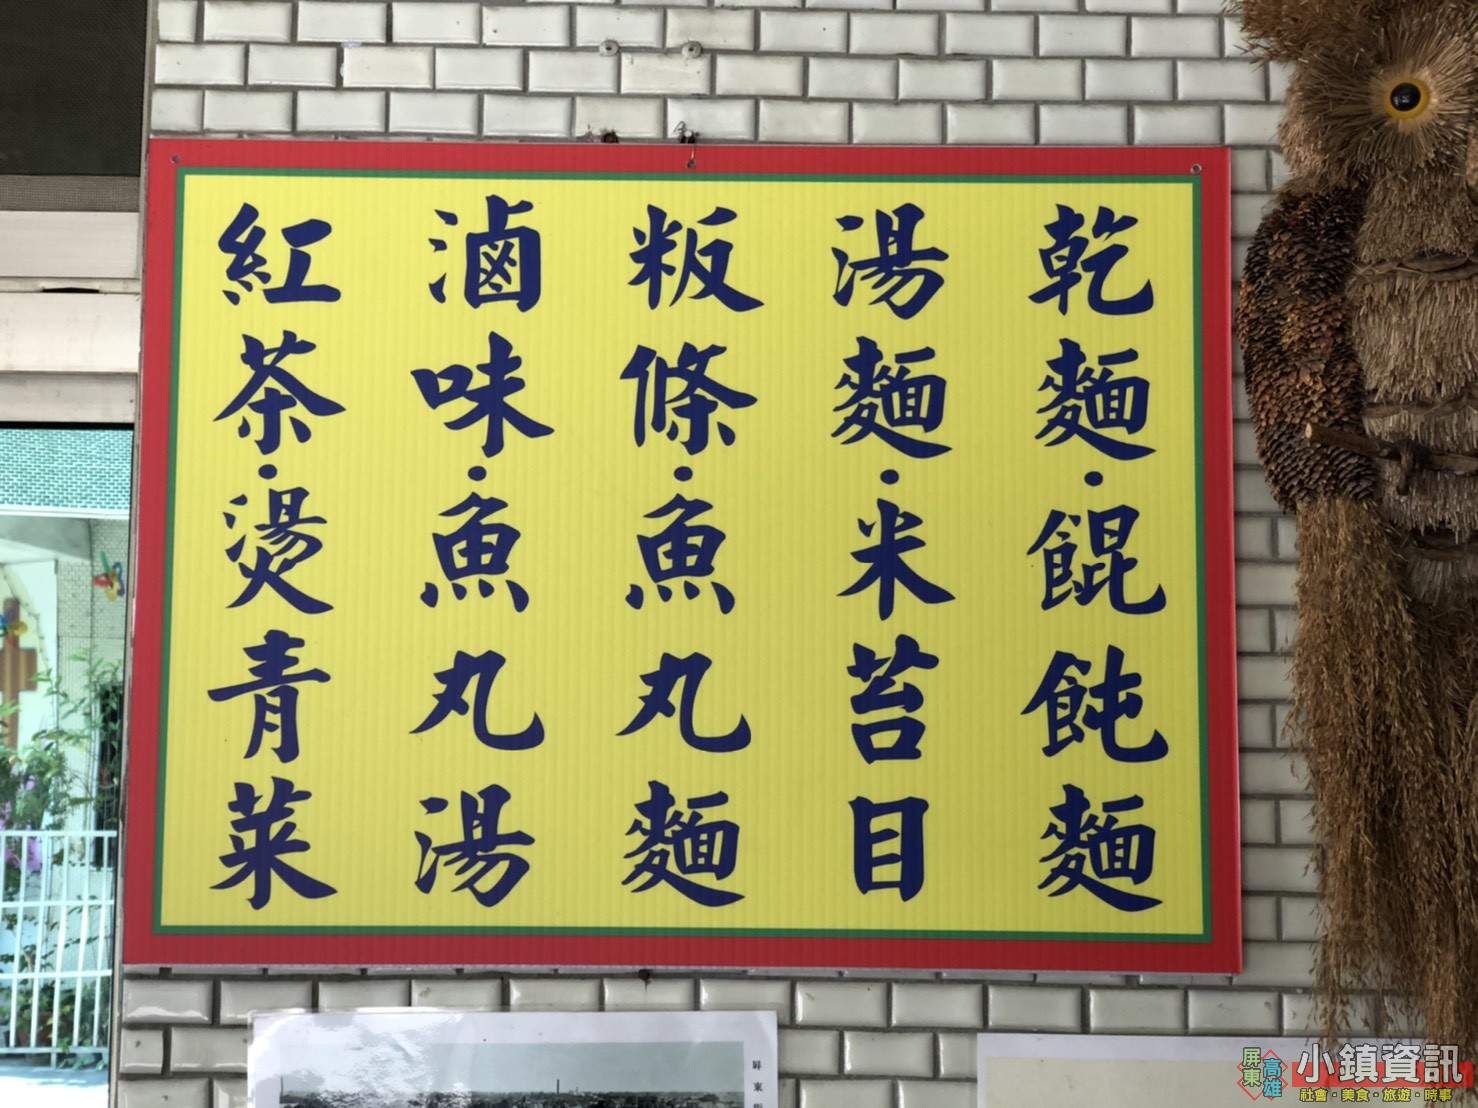 乾麵・餛飩麵
湯麵・米苔目
粄條・魚丸麵
滷味・魚丸湯
紅茶・燙青菜
屏東
高雄
小鎮資訊
社會・美食・旅遊・時事